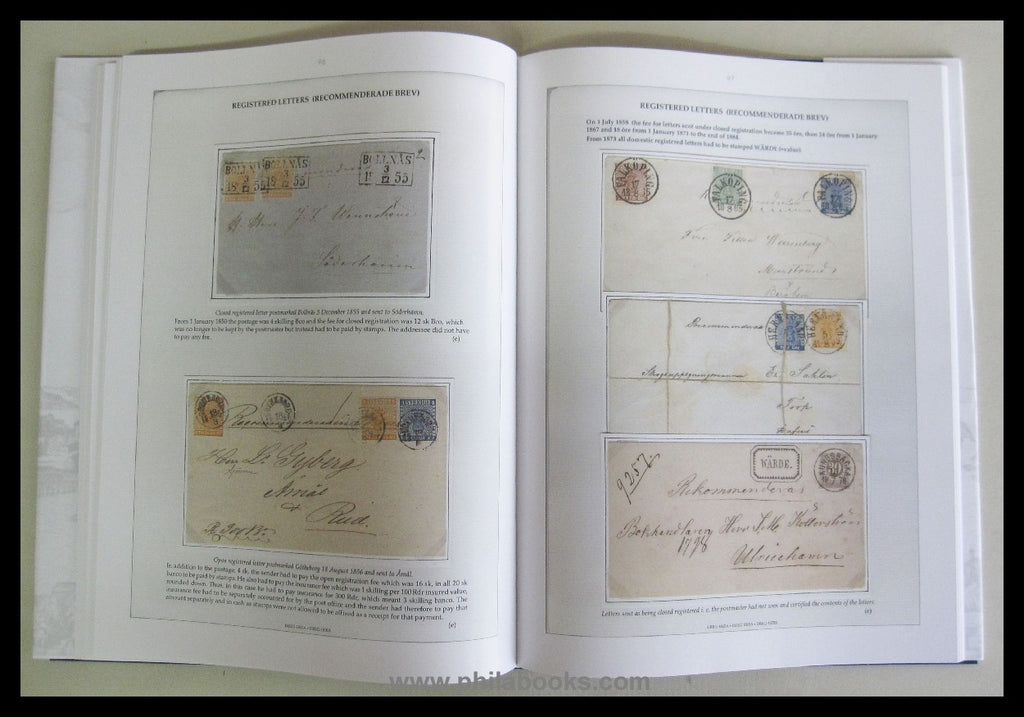 REGISTERED LETTERS (RECOMMENDERADE BREV)
BOLLNÄS
3
12
18 55
BOLLNÄS
3
12
18 55
BOLLNÄS
3
12
55
Söderhamn
Closed registered letter postmarked Bollnäs 3 December 1855 and sent to Söderhamn.
From 1 January 1850 the postage was 4 skilling Bco and the fee for closed registration was 12 sk Bco, which
was no longer to be kept by the postmaster but instead had to be paid by stamps. The addressee did not have
to pay any fee.
(e)
Recommenderas
Gyberg
Åmål
Rud.
Open registered letter postmarked Göteborg 18 August 1856 and sent to Åmål.
In addition to the postage, 4 sk, the sender had to pay the open registration fee which was 16 sk, in all 20 sk
banco to be paid by stamps. He also had to pay the insurance fee which was 1 skilling per 100 Rdr insured value,
rounded down. Thus, in this case he had to pay insurance for 300 Rdr, which meant 3 skilling banco. The
insurance fee had to be separately accounted for by the post office and the sender had therefore to pay that
amount separately and in cash as stamps were not allowed to be affixed as a receipt for that payment.
(e)
97
REGISTERED LETTERS (RECOMMENDERADE BREV)
On 1 July 1858 the fee for letters sent under closed registration became 35 öre, then 24 öre from 1 January
1867 and 18 öre from 1 January 1873 to the end of 1884.
From 1873 all domestic registered letters had to be stamped WÄRDE (=value)
FALKÖPING
17
8
FALKÖPING
17
8
FALKÖPING
Recommenderas
Er. Sahlin
Torp
9257.
WÄRDE.
Rekommenderas
Bokhandlaren Herr
1798
Ulricehamn
Letters sent as being closed registered i. e. the postmaster had not seen and certified the contents of the letters.
(e)
www.philabooks.com